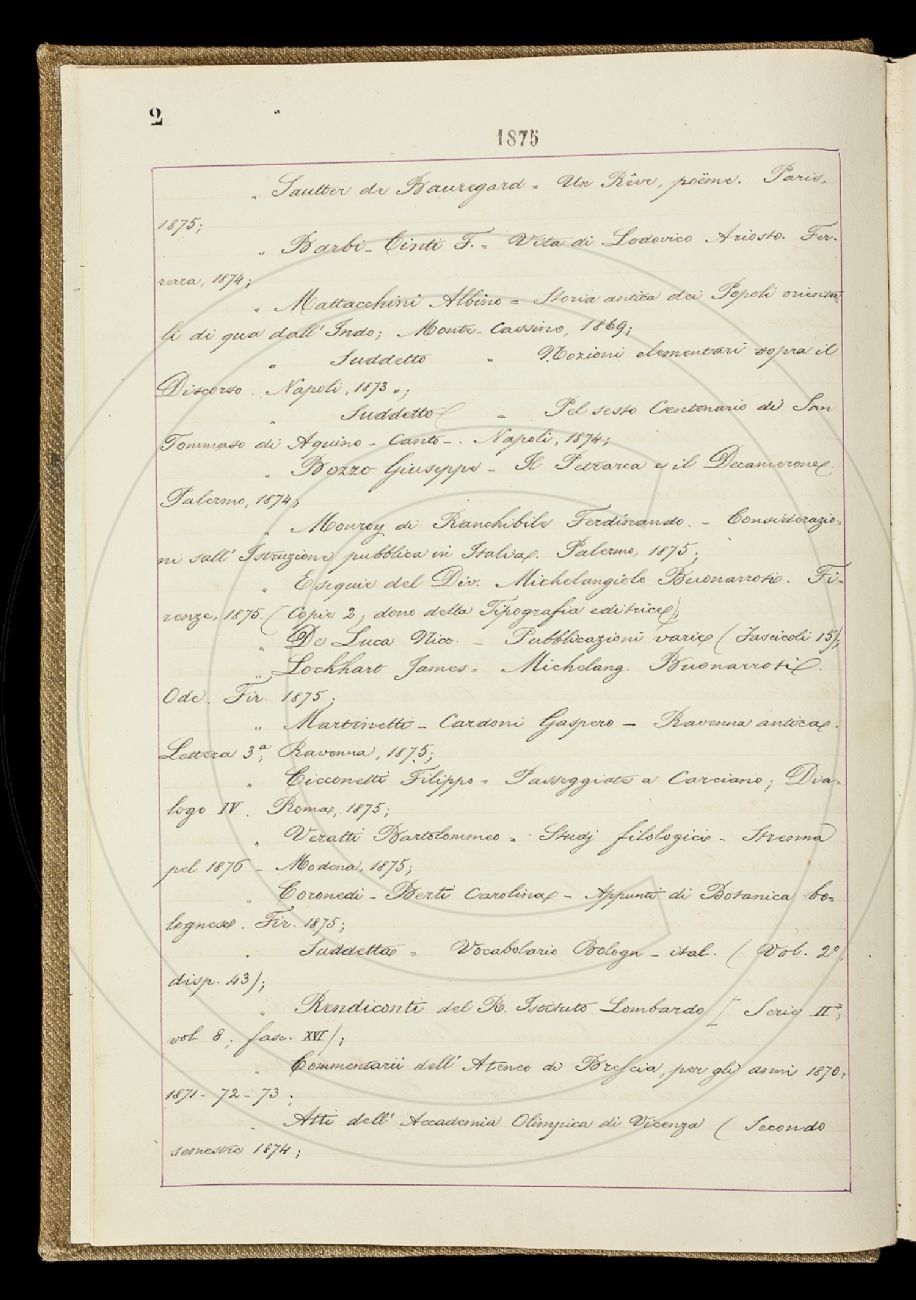 2
1875
„ Sautter de Bauregard = Un Rêve, poëme. Paris.
1875;
„ Barbi-Cinti F. = Vita di Lodovico Ariosto. Fer-
rara, 1874;
„ Mattacchini Albino = Storia antica dei Popoli orienta-
li di qua dall' Indo; Monte-Cassino, 1869;
„ Suddetto „ Nozioni elementari sopra il
Discorso. Napoli, 1873 „;
„ Suddetto = Pel sesto Centenario di San
Tommaso di Aquino - Canto -. Napoli, 1874;
„ Bozzo Giuseppe - Il Petrarca e il Decamerone.
Palermo, 1874;
„ Monroy di Ranchibile Ferdinando. - Considerazio-
ni sull' Istruzione pubblica in Italia. Palermo, 1875;
„ Esequie del Div. Michelangiolo Buonarroti. Fi-
renze, 1875. (Copie 2; dono della Tipografia editrice);
„ De Luca Nicc. - Pubblicazioni varie (Fascicoli 15);
„ Lockhart James = Michelang. Buonarroti.
Ode. Fir. 1875;
„ Martinetti - Cardoni Gaspero - Ravenna antica.
Lettera 3ª; Ravenna, 1875;
„ Cicconetti Filippo = Passeggiate a Carciano; Dia-
logo IV. Roma, 1875;
„ Veratti Bartolommeo = Studj filologici - Strenna
pel 1876 - Modena, 1875;
„ Coronedi - Berti Carolina - Appunti di Botanica bo-
lognese. Fir. 1875;
„ Suddetta = Vocabolario Bologn - ital. (Vol. 2º,
disp. 43);
„ Rendiconti del R. Istituto Lombardo [Serie IIª;
vol. 8; fasc. XVI);
„ Commentarii dell' Ateneo di Brescia, per gli anni 1870,
1871 - 72 - 73;
„ Atti dell' Accademia Olimpica di Vicenza (Secondo
semestre 1874;